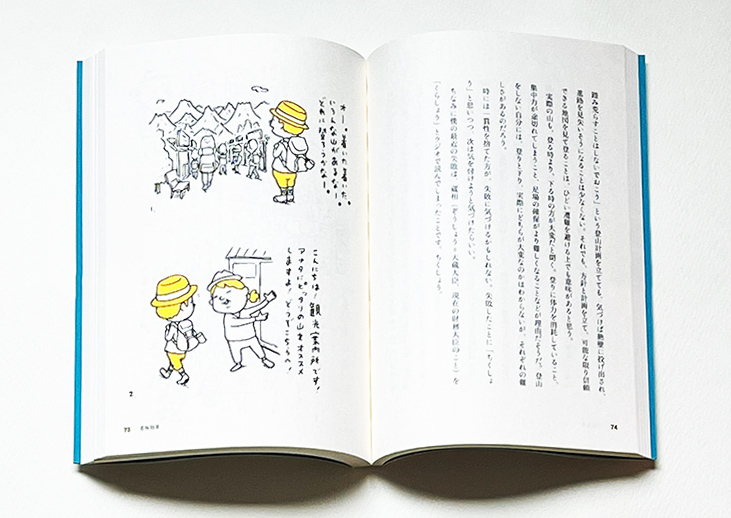 オー。着いた着いた。
いろんな山があるなー。
どれに登ろうかなー。
こんにちは！観光案内所です！
アナタにピッタリの山をオススメ
しますよ！どうぞこちらへ！
2
73
踏み荒らすことはしないでおこう」という登山計画を立てても、気づけば絶壁に投げ出され、
進路を見失いそうになることは少なくない。それでも、方針と計画を立て、可能な限り信頼
できる地図を見て登ることは、ひどい遭難を避ける上でも意味があると思う。
実際の山も、登る時より、下る時の方が大変だと聞く。登りに体力を消耗していること、
集中力が途切れてしまうこと、足場の確保がより難しくなることなどが理由だそうだ。登山
をしない自分には、登りと下り、実際にどちらが大変なのかはわからないが、それぞれの難
しさがあるのだろう。
時には一貫性を捨てた方が、失敗に気づけるかもしれない。失敗したことに「ちくしょ
う」と思いつつ、次は気を付けようと気づけたらいい。
ちなみに僕の最近の失敗は、蔵相（ぞうしょう＝大蔵大臣。現在の財務大臣のこと）を
「くらしょう」とラジオで読んでしまったことです。ちくしょう。
74